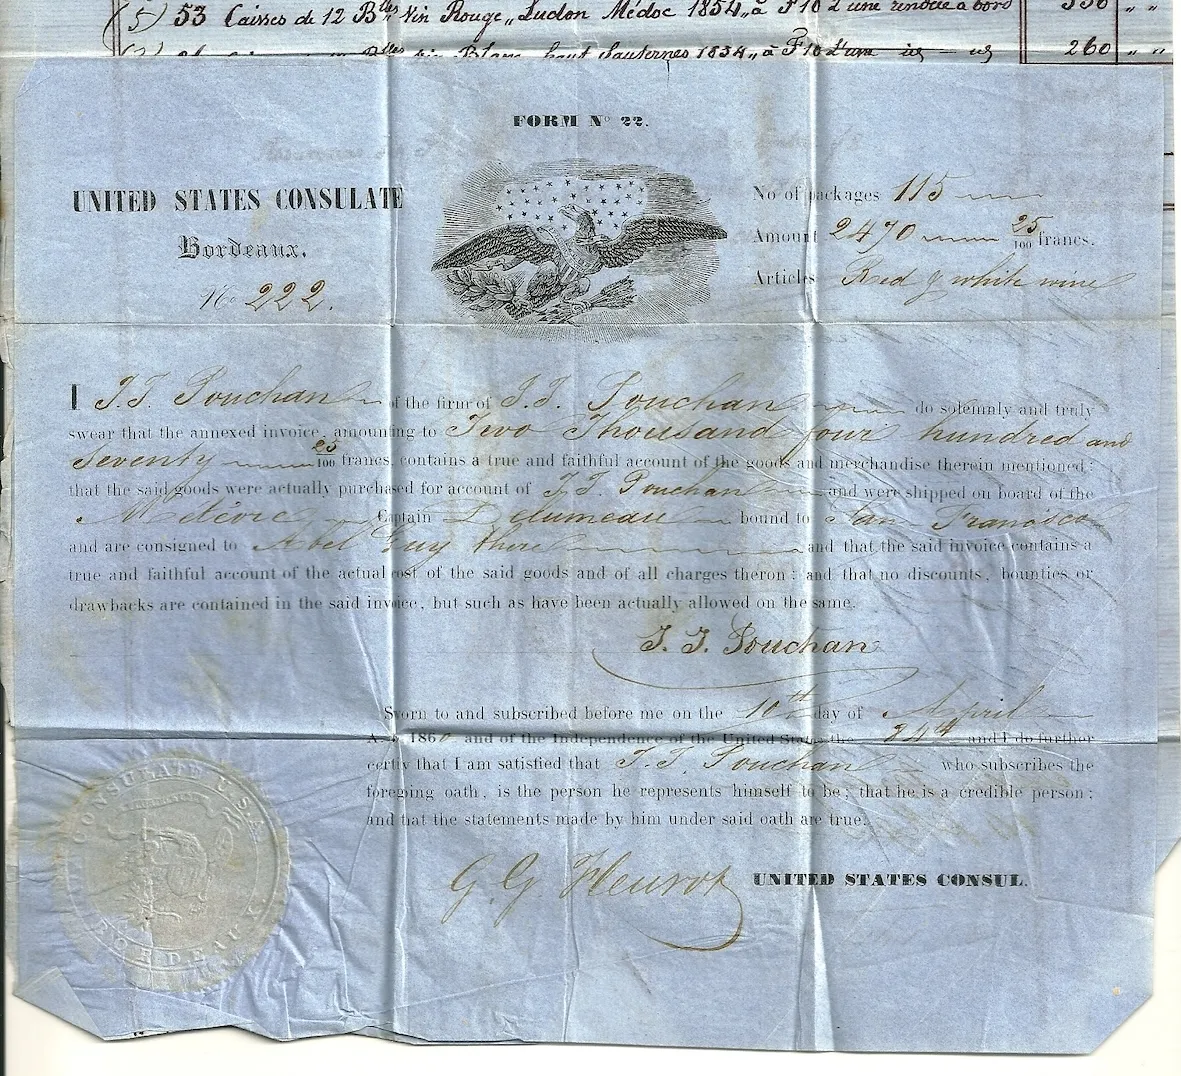 (5) 53 Caisses de 12 Blles Vin Rouge „ Ludon Médoc 1854 „ à F 10 l'une rendue à bord 530 „ „
haut Sauternes 1834 „ à F 10 l'une 260 „ „
FORM No 22.
UNITED STATES CONSULATE
Bordeaux.
No 222.
No of packages 115
Amount 2470 25/100 francs.
Articles Red & white wine
I J. J. Pouchan of the firm of J. J. Pouchan do solemnly and truly
swear that the annexed invoice, amounting to Two Thousand four hundred and
Seventy 25/100 francs, contains a true and faithful account of the goods and merchandise therein mentioned;
that the said goods were actually purchased for account of J. J. Pouchan and were shipped on board of the
Captain bound to San Francisco
and are consigned to Abel Guy there and that the said invoice contains a
true and faithful account of the actual cost of the said goods and of all charges theron; and that no discounts, bounties or
drawbacks are contained in the said invoice, but such as have been actually allowed on the same.
J. J. Pouchan
Sworn to and subscribed before me on the 10th day of April
A. D. 1860 and of the Independence of the United States the 84th and I do further
certify that I am satisfied that J. J. Pouchan who subscribes the
foregoing oath, is the person he represents himself to be; that he is a credible person;
and that the statements made by him under said oath are true.
G. G. Fleurot UNITED STATES CONSUL.
CONSULATE U.S.A.
BORDEAUX